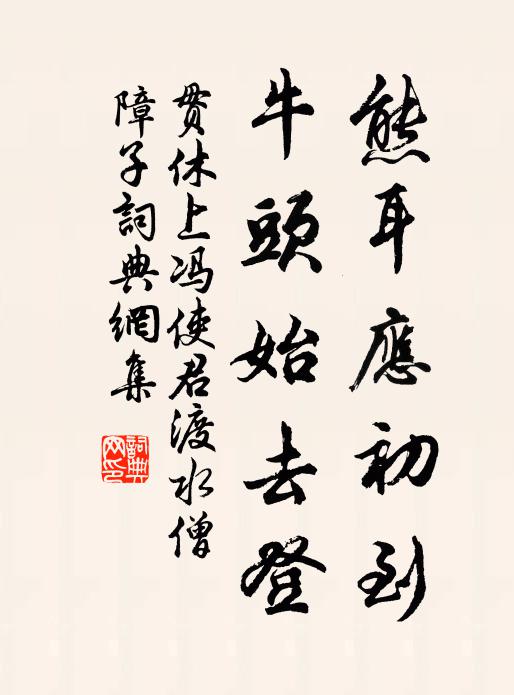 熊耳應初到
牛頭始去登
貫休上冯使君渡水僧
障子詞典網集
詞典
网印